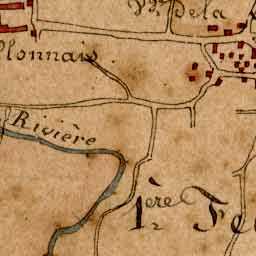 de la
lonnais
Rivière
1ère Fe